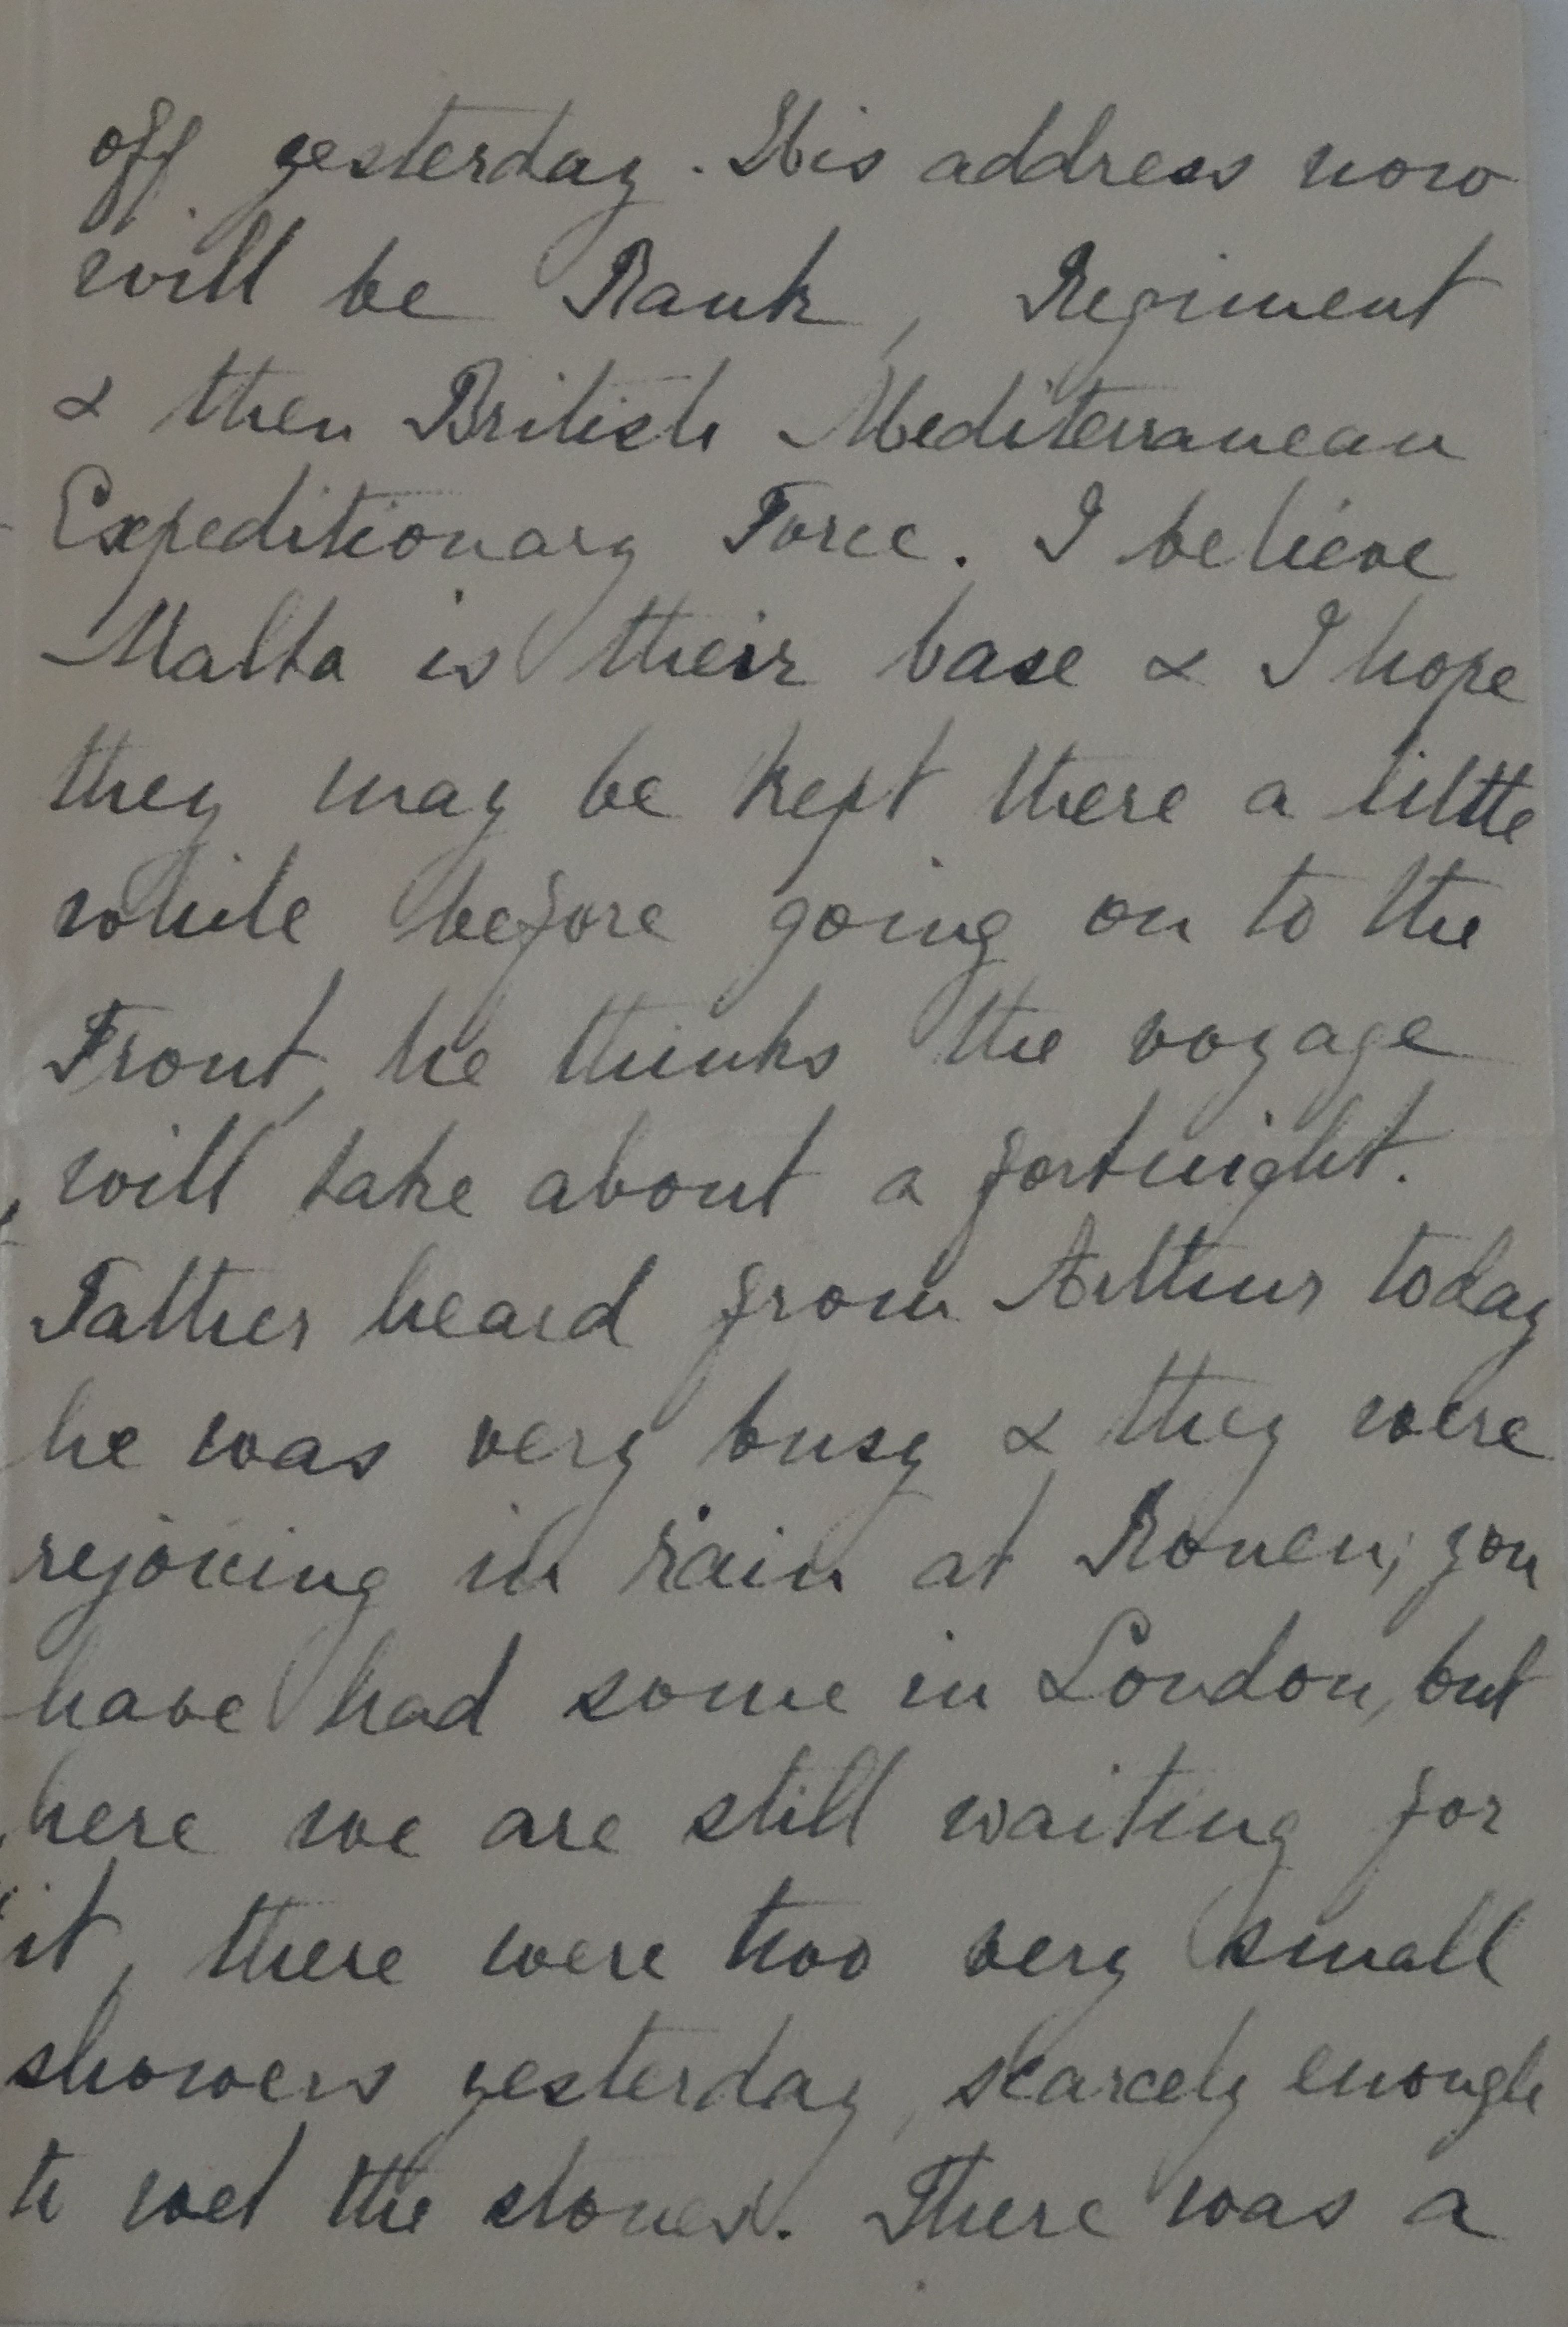 off yesterday. His address now
will be Rank, Regiment
& then British Mediterranean
Expeditionary Force. I believe
Malta is their base & I hope
they may be kept there a little
while before going on to the
Front, he thinks the voyage
will take about a fortnight.
Father heard from Arthur today
he was very busy & they were
rejoicing in rain at Rouen, you
have had some in London, but
here we are still waiting for
it, there were two very small
showers yesterday, scarcely enough
to wet the stones. There was a